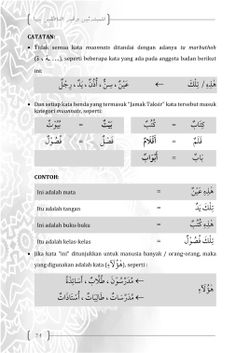 CATATAN:
• Tidak semua kata muannats ditandai dengan adanya ta marbuthah
(ة ، ـة، ...), seperti beberapa kata yang ada pada anggota badan berikut
ini:
هٰذِهِ / تِلْكَ ← عَيْنٌ ، سِنٌّ ، أُذُنٌ ، يَدٌ ، رِجْلٌ
• Dan setiap kata benda yang termasuk "Jamak Taksir" kata tersebut masuk
kategori muannats, seperti:
كِتَابٌ = كُتُبٌ بَيْتٌ = بُيُوْتٌ
قَلَمٌ = أَقْلَامٌ فَصْلٌ = فُصُوْلٌ
بَابٌ = أَبْوَابٌ
CONTOH:
Ini adalah mata = هٰذِهِ عَيْنٌ
Itu adalah tangan = تِلْكَ يَدٌ
Ini adalah buku-buku = هٰذِهِ كُتُبٌ
Itu adalah kelas-kelas = تِلْكَ فُصُوْلٌ
• Jika kata "ini" ditunjukkan untuk manusia banyak / orang-orang, maka
yang digunakan adalah kata (هٰؤُلَاءِ), seperti :
هٰؤُلَاءِ ← مُدَرِّسُوْنَ ، طُلَّابٌ ، أَسَاتِذَةٌ
← مُدَرِّسَاتٌ ، طَالِبَاتٌ ، أُسْتَاذَاتٌ